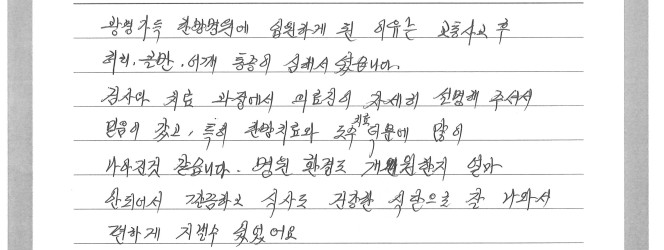 광명가득 한방병원에 입원하게 된 이유는 교통사고 후
허리, 골반, 어깨 통증이 심해서 왔습니다.
검사나 치료 과정에서 의료진이 자세히 설명해 주셔서
믿음이 갔고, 특히 한방치료와 도수치료 덕분에 많이
나아진것 같습니다. 병원 환경도 개원한지 얼마
안되어서 깔끔하고 식사도 건강한 식단으로 잘 나와서
편하게 지낼수 있었어요